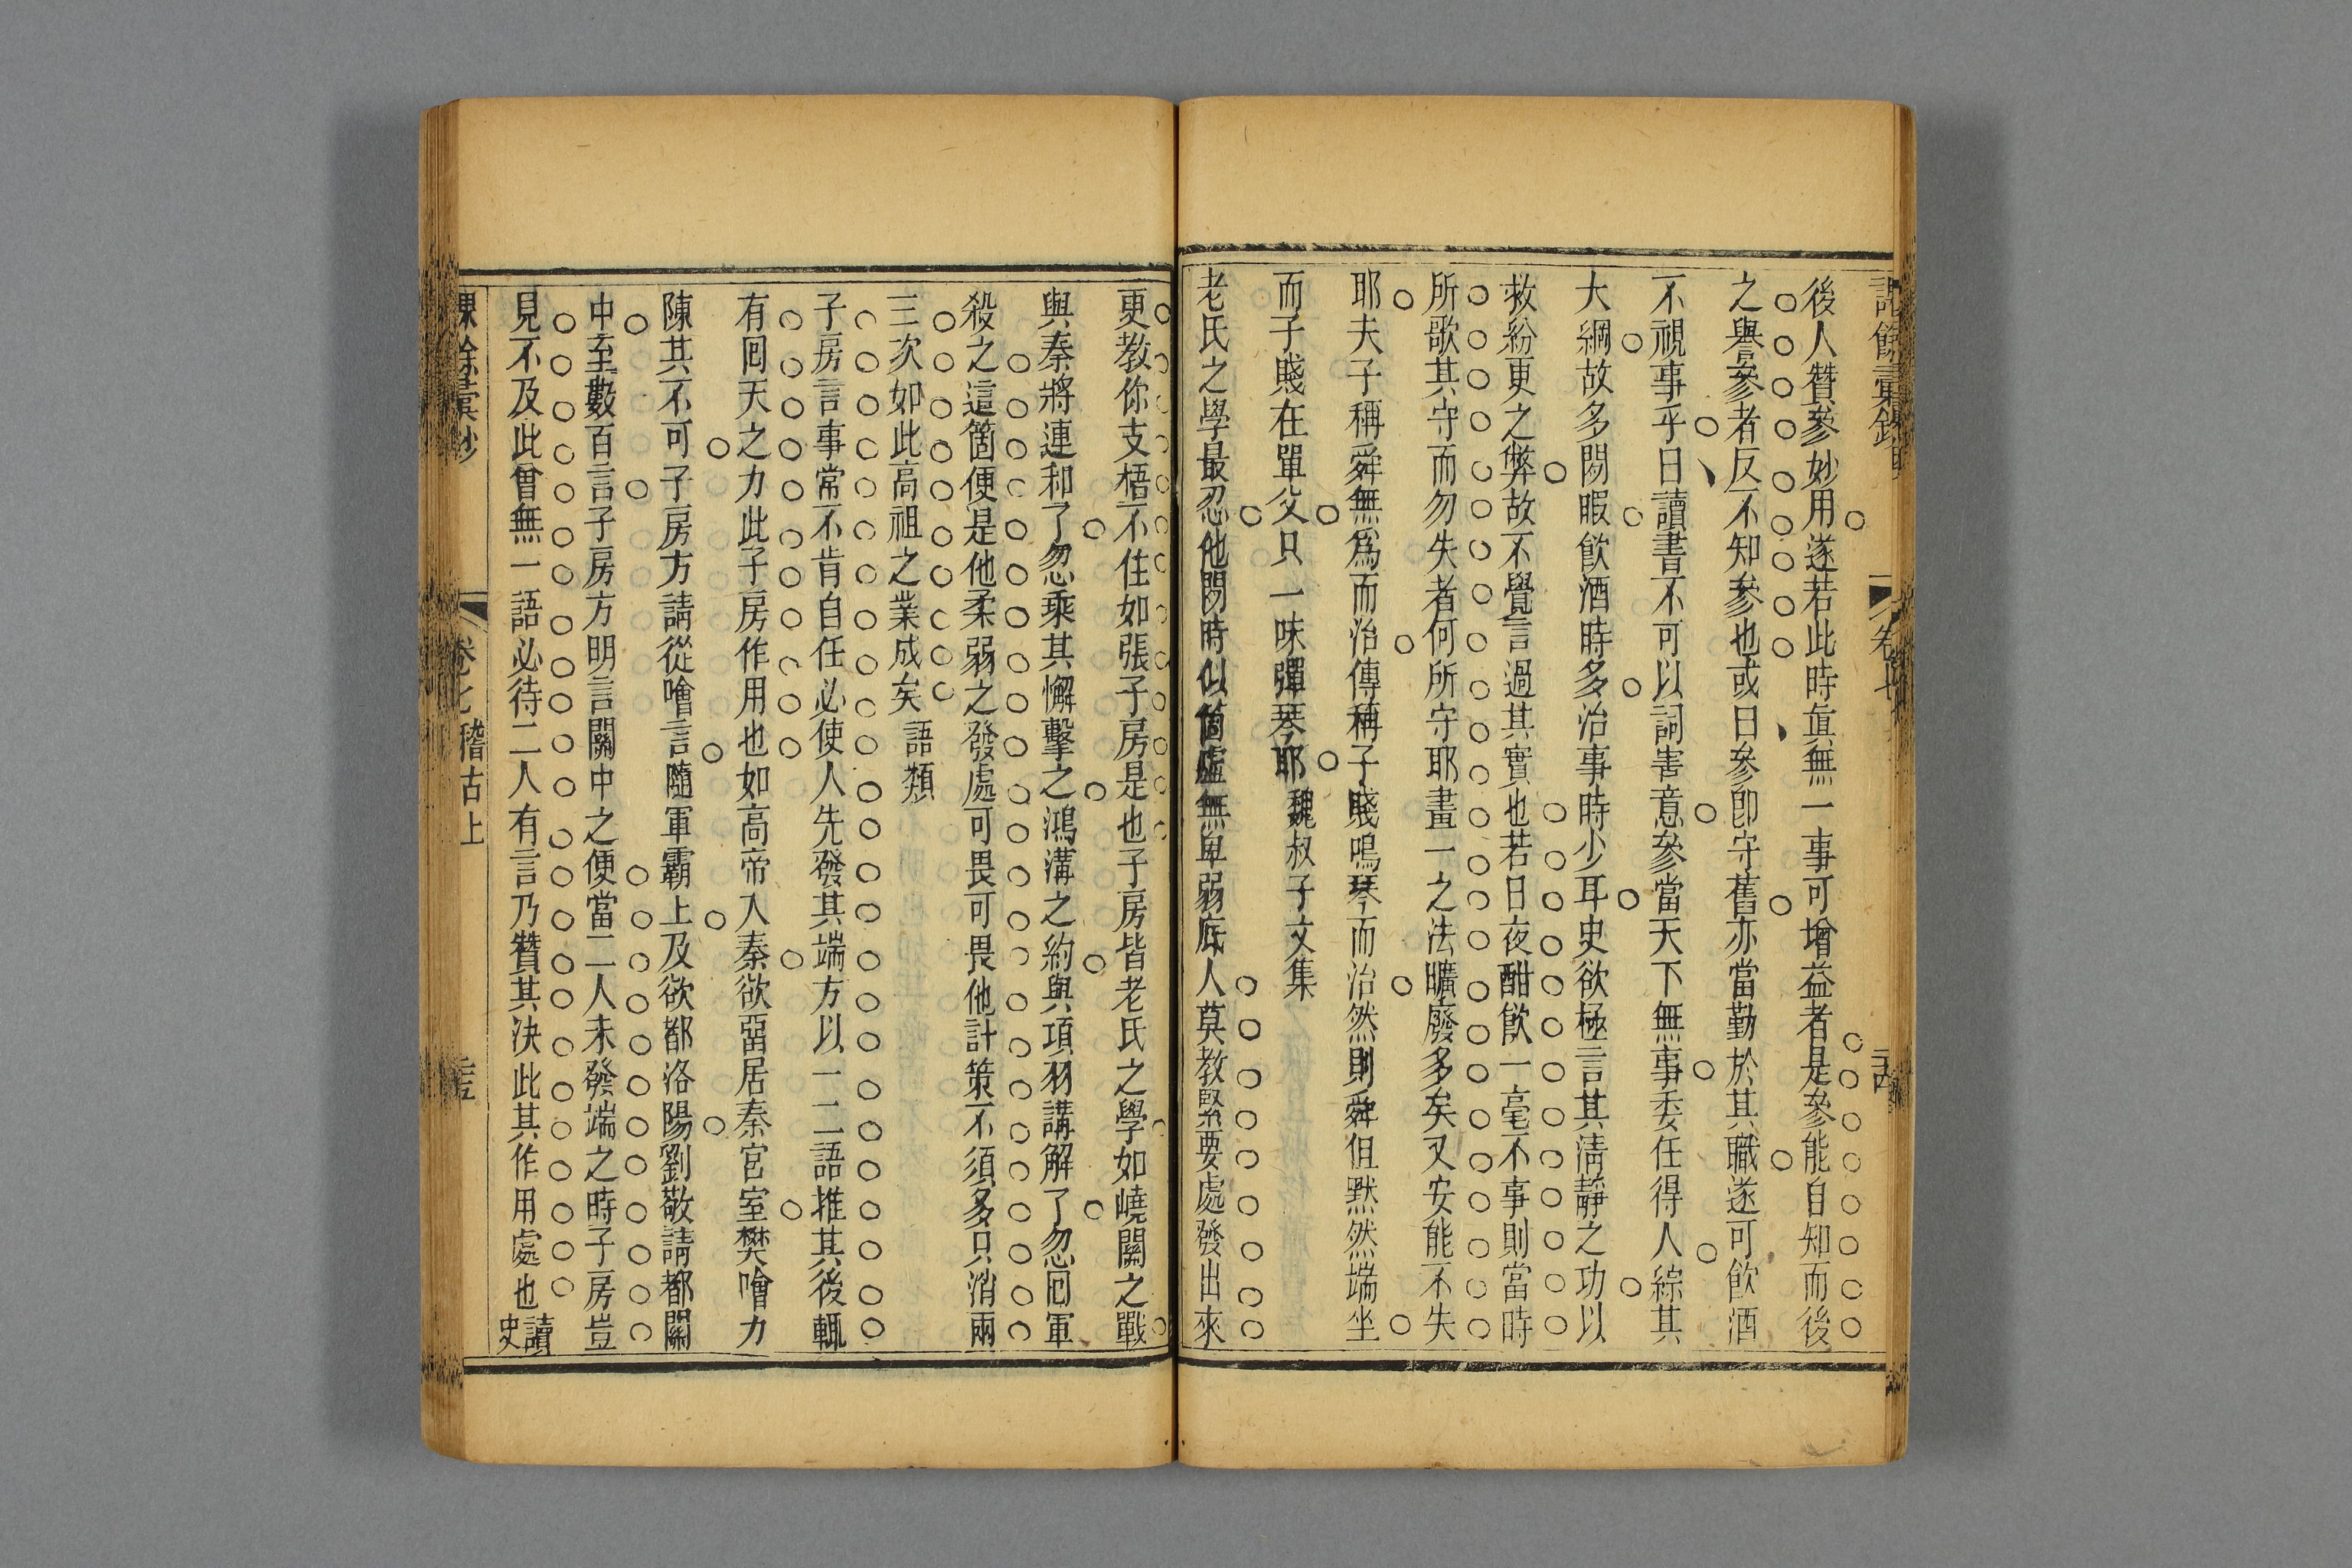 後人贊參妙用遂若此時眞無一事可增益者是參能自知而後
之譽參者反不知參也或曰參卽守舊亦當勤於其職遂可飮酒
不視事乎曰讀書不可以詞害意參當天下無事委任得人綜其
大綱故多閒暇飮酒時多治事時少耳史欲極言其淸靜之功以
救紛更之弊故不覺言過其實也若日夜酣飮一毫不事則當時
所歌其守而勿失者何所守耶畫一之法曠廢多矣又安能不失
耶夫子稱舜無爲而治傳稱子賤鳴琴而治然則舜但默然端坐
而子賤在單父只一味彈琴耶 魏叔子文集
老氏之學最忍他閒時似箇虛無卑弱底人莫教緊要處發出來
更教你支梧不住如張子房是也子房皆老氏之學如嶢關之戰
與秦將連和了忽乘其懈擊之鴻溝之約與項羽講解了忽囘軍
殺之這箇便是他柔弱之發處可畏可畏他計策不須多只消兩
三次如此高祖之業成矣 語類
子房言事常不肯自任必使人先發其端方以一二語推其後輒
有囘天之力此子房作用也如高帝入秦欲畱居秦宮室樊噲力
陳其不可子房方請從噲言隨軍霸上及欲都洛陽劉敬請都關
中至數百言子房方明言關中之便當二人未發端之時子房豈
見不及此曾無一語必待二人有言乃贊其決此其作用處也 讀史
課餘彙鈔 卷七 稽古上